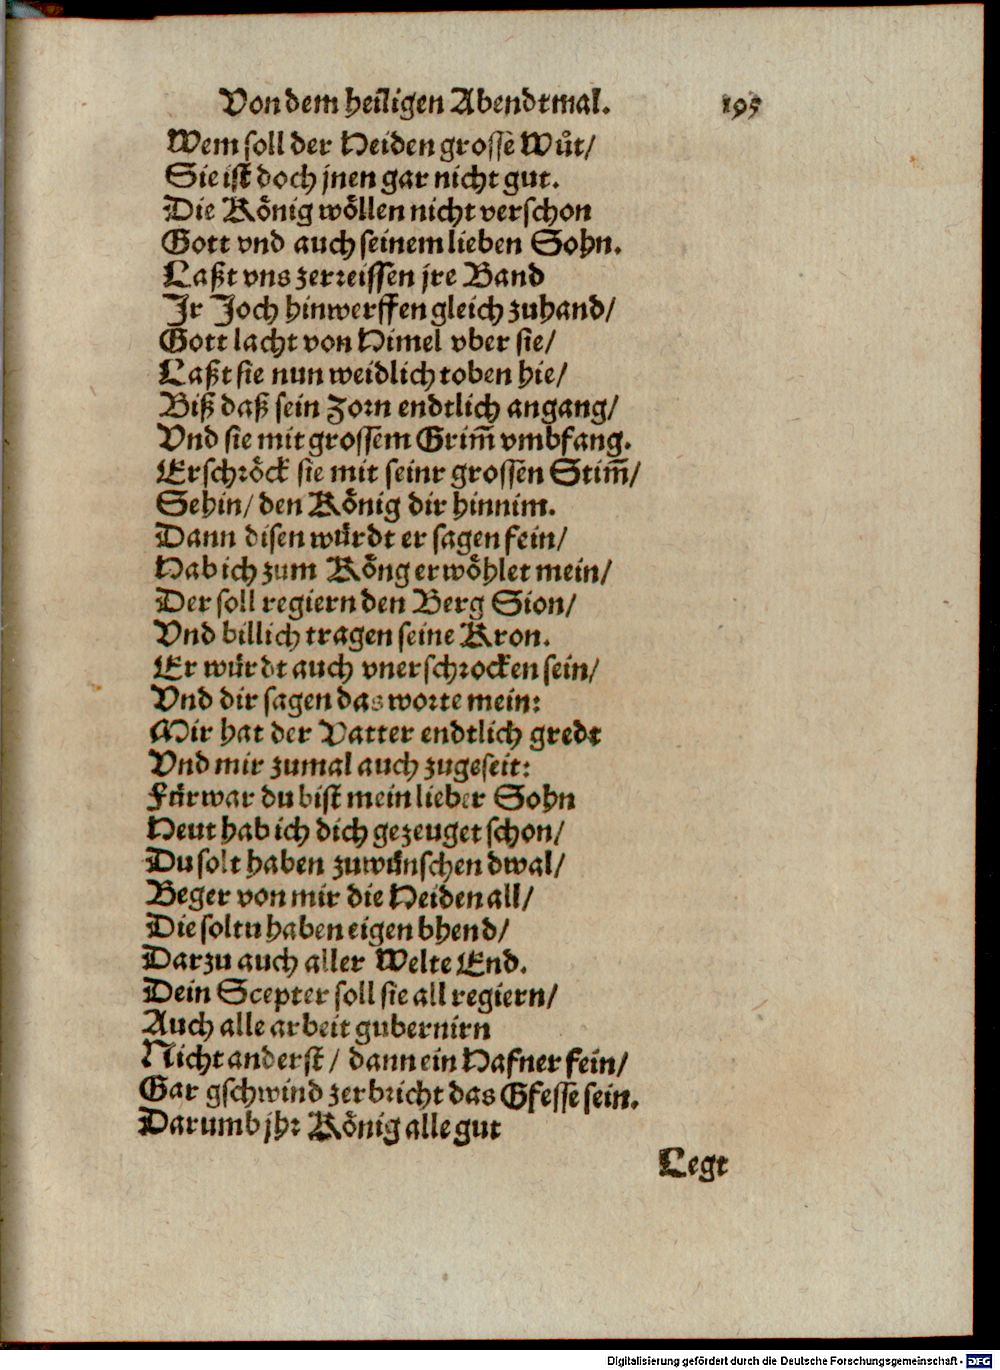 Von dem heiligen Abendtmal. 195
Wem soll der Heiden grosse Wuͤt/
Sie ist doch jnen gar nicht gut.
Die Koͤnig woͤllen nicht verschon
Gott vnd auch seinem lieben Sohn.
Laßt vns zerreissen jre Band
Ir Joch hinwerffen gleich zuhand/
Gott lacht von Himel vber sie/
Laßt sie nun weidlich toben hie/
Biß daß sein Zorn endtlich angang/
Vnd sie mit grossem Grim̃ vmbfang.
Erschroͤck sie mit seinr grossen Stim̃/
Sehin/ den Koͤnig dir hinnim.
Dann disen wuͤrdt er sagen fein/
Hab ich zum Koͤng erwoͤhlet mein/
Der soll regiern den Berg Sion/
Vnd billich tragen seine Kron.
Er wuͤrdt auch vnerschrocken sein/
Vnd dir sagen das worte mein:
Mir hat der Vatter endtlich gredt
Vnd mir zumal auch zugeseit:
Fuͤrwar du bist mein lieber Sohn
Heut hab ich dich gezeuget schon/
Du solt haben zuwuͤnschen dwal/
Beger von mir die Heiden all/
Die soltu haben eigen bhend/
Darzu auch aller Welte End.
Dein Scepter soll sie all regiern/
Auch alle arbeit gubernirn
Nicht anderst/ dann ein Hafner fein/
Gar gschwind zerbricht das Gfesse sein.
Darumb jhr Koͤnig alle gut
Legt
Digitalisierung gefördert durch die Deutsche Forschungsgemeinschaft - DFG